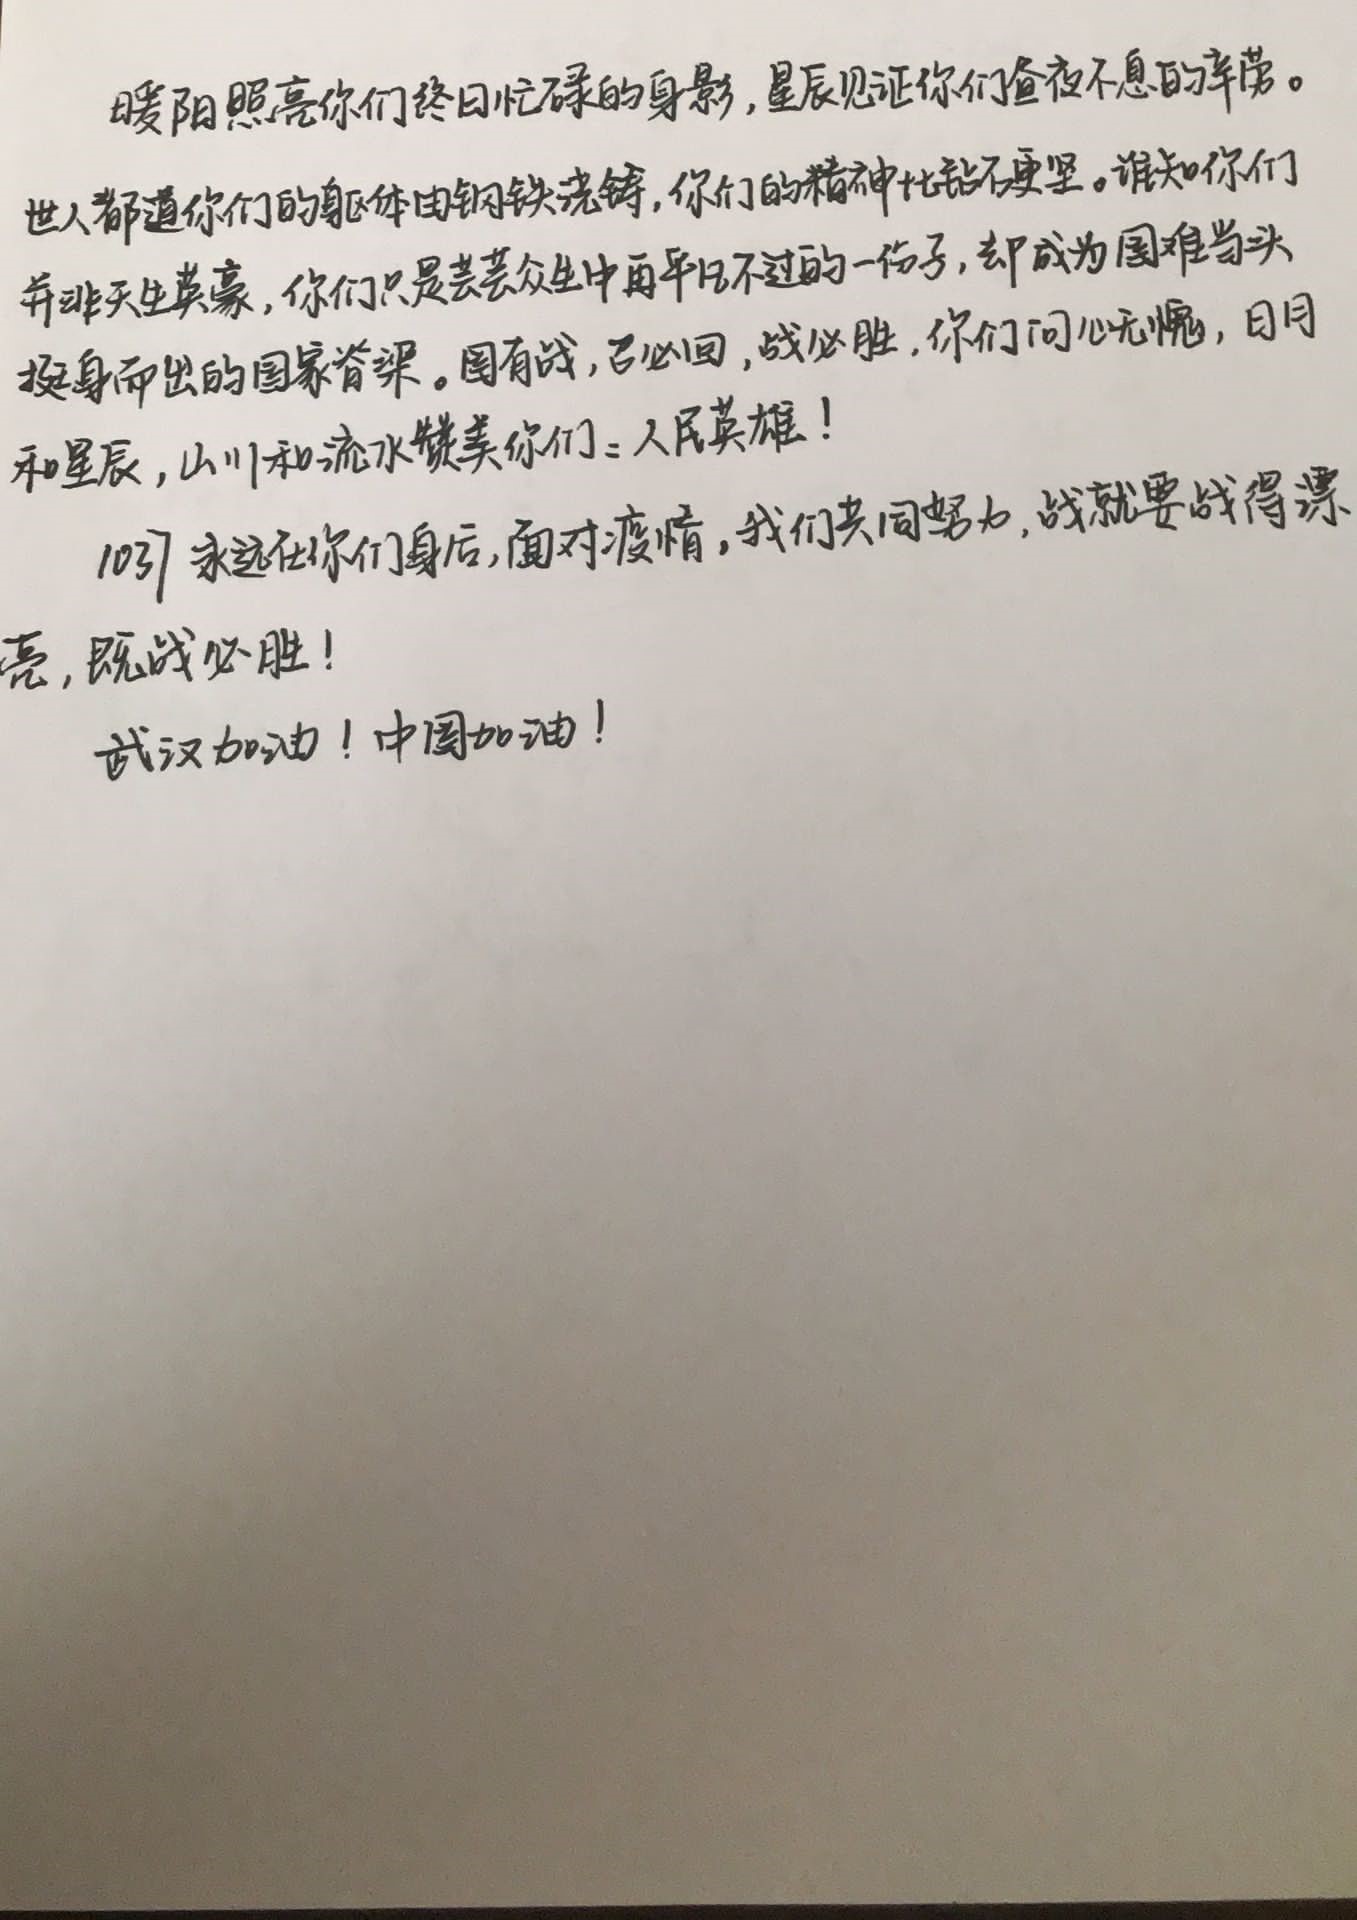 暖阳照亮你们终日忙碌的身影，星辰见证你们昼夜不息的辛劳。
世人都道你们的躯体由钢铁浇铸，你们的精神比钻石更坚。谁知你们
并非天生英豪，你们只是芸芸众生中再平凡不过的一份子，却成为国难当头
挺身而出的国家脊梁。国有战，召必回，战必胜，你们问心无愧，日月
和星辰，山川和流水赞美你们：人民英雄！
1037永远在你们身后，面对疫情，我们共同努力，战就要战得漂
亮，既战必胜！
武汉加油！中国加油！